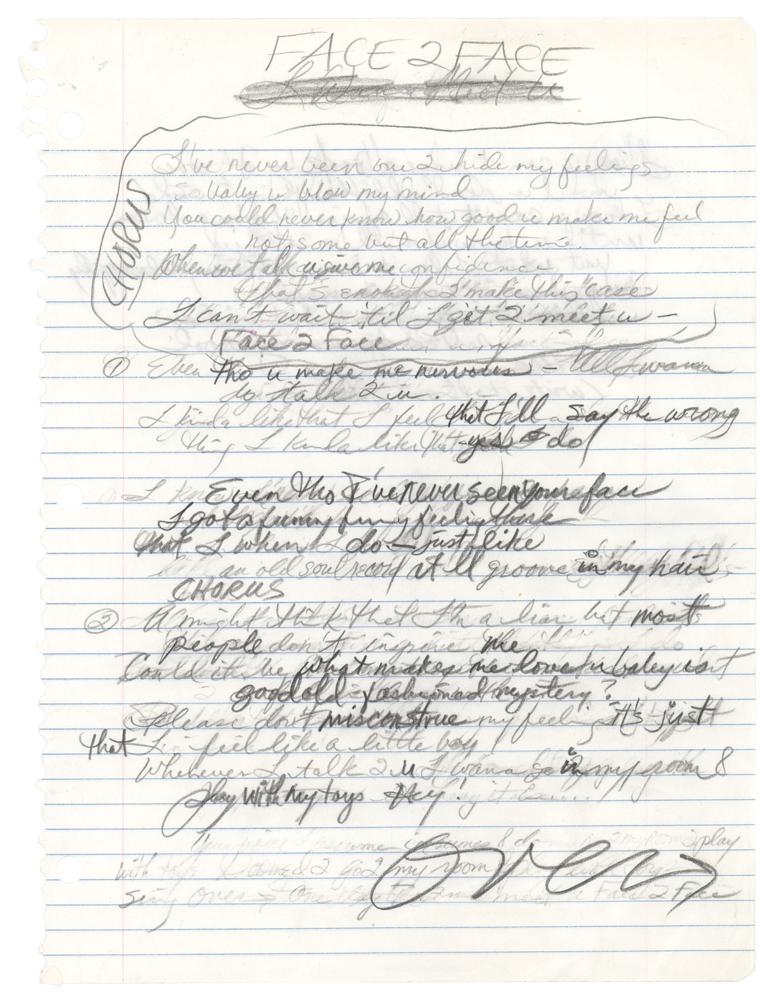 FACE 2 FACE
I Wanna Meet U
CHORUS
I've never been one 2 hide my feelings
baby u blow my mind
You could never know how good u make me feel
not some but all the time.
When we talk u give me confidence
that's enough 2 make this case
I can't wait 'til I get 2 meet u —
Face 2 Face
① Even tho u make me nervous — All I wanna
do is talk 2 u.
I kinda like that I feel that I'll say the wrong
thing I kinda like that yes I do
Even tho I've never seen your face
I got a funny funny feeling
that I when I do — just like
an old soul record at ll groove in my hair
CHORUS
② U might think that I'm a liar but most
people don't inspire me
Could it be what makes me love u baby is it
good old fashioned mystery?
Please don't misconstrue my feeling it's just
that I feel like a little boy
Whenever I talk 2 U I wanna go in my room &
play with my toys Hey!
play
with my room
Sing over Face 2 Face